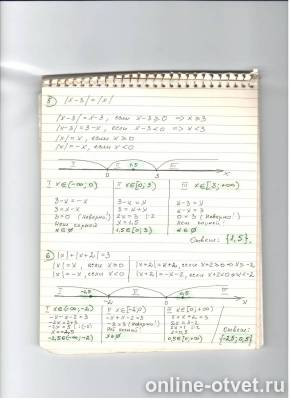 5) |x-3|=|x|
|x-3|=x-3, если x-3≥0 => x≥3
|x-3|=3-x, если x-3<0 => x<3
|x|=x, если x≥0
|x|=-x, если x<0
I II 1,5 III
0 3 x
I x∈(-∞;0) II x∈[0;3) III x∈[3;+∞)
3-x=-x 3-x=x x-3=x
3=x-x 3=x+x x-x=3
3=0 (неверно!) 2x=3 |:2 0=3 (неверно!)
Нет корней x=1,5 Нет корней
x∈∅ 1,5∈[0;3) x∈∅
Ответ: {1,5}.
6) |x|+|x+2|=3
|x|=x, если x≥0 |x+2|=x+2, если x+2≥0 => x≥-2
|x|=-x, если x<0 |x+2|=-x-2, если x+2<0 => x<-2
I -2,5 II III
-2 0 x
I x∈(-∞;-2) II x∈[-2;0) III x∈[0;+∞)
-x-x-2=3 -x+x+2=3 x+x+2=3
-2x=3+2 2=3 (неверно!) 2x=3-2
-2x=5 |:(-2) Нет корней 2x=1 |:2
x=-2,5 x∈∅ x=0,5
-2,5∈(-∞;-2) 0,5∈[0;+∞)
Ответ: {-2,5; 0,5}
online-otvet.ru